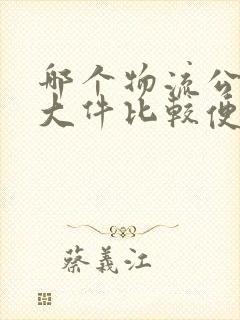 哪个物流公
大件比较便
蔡義江